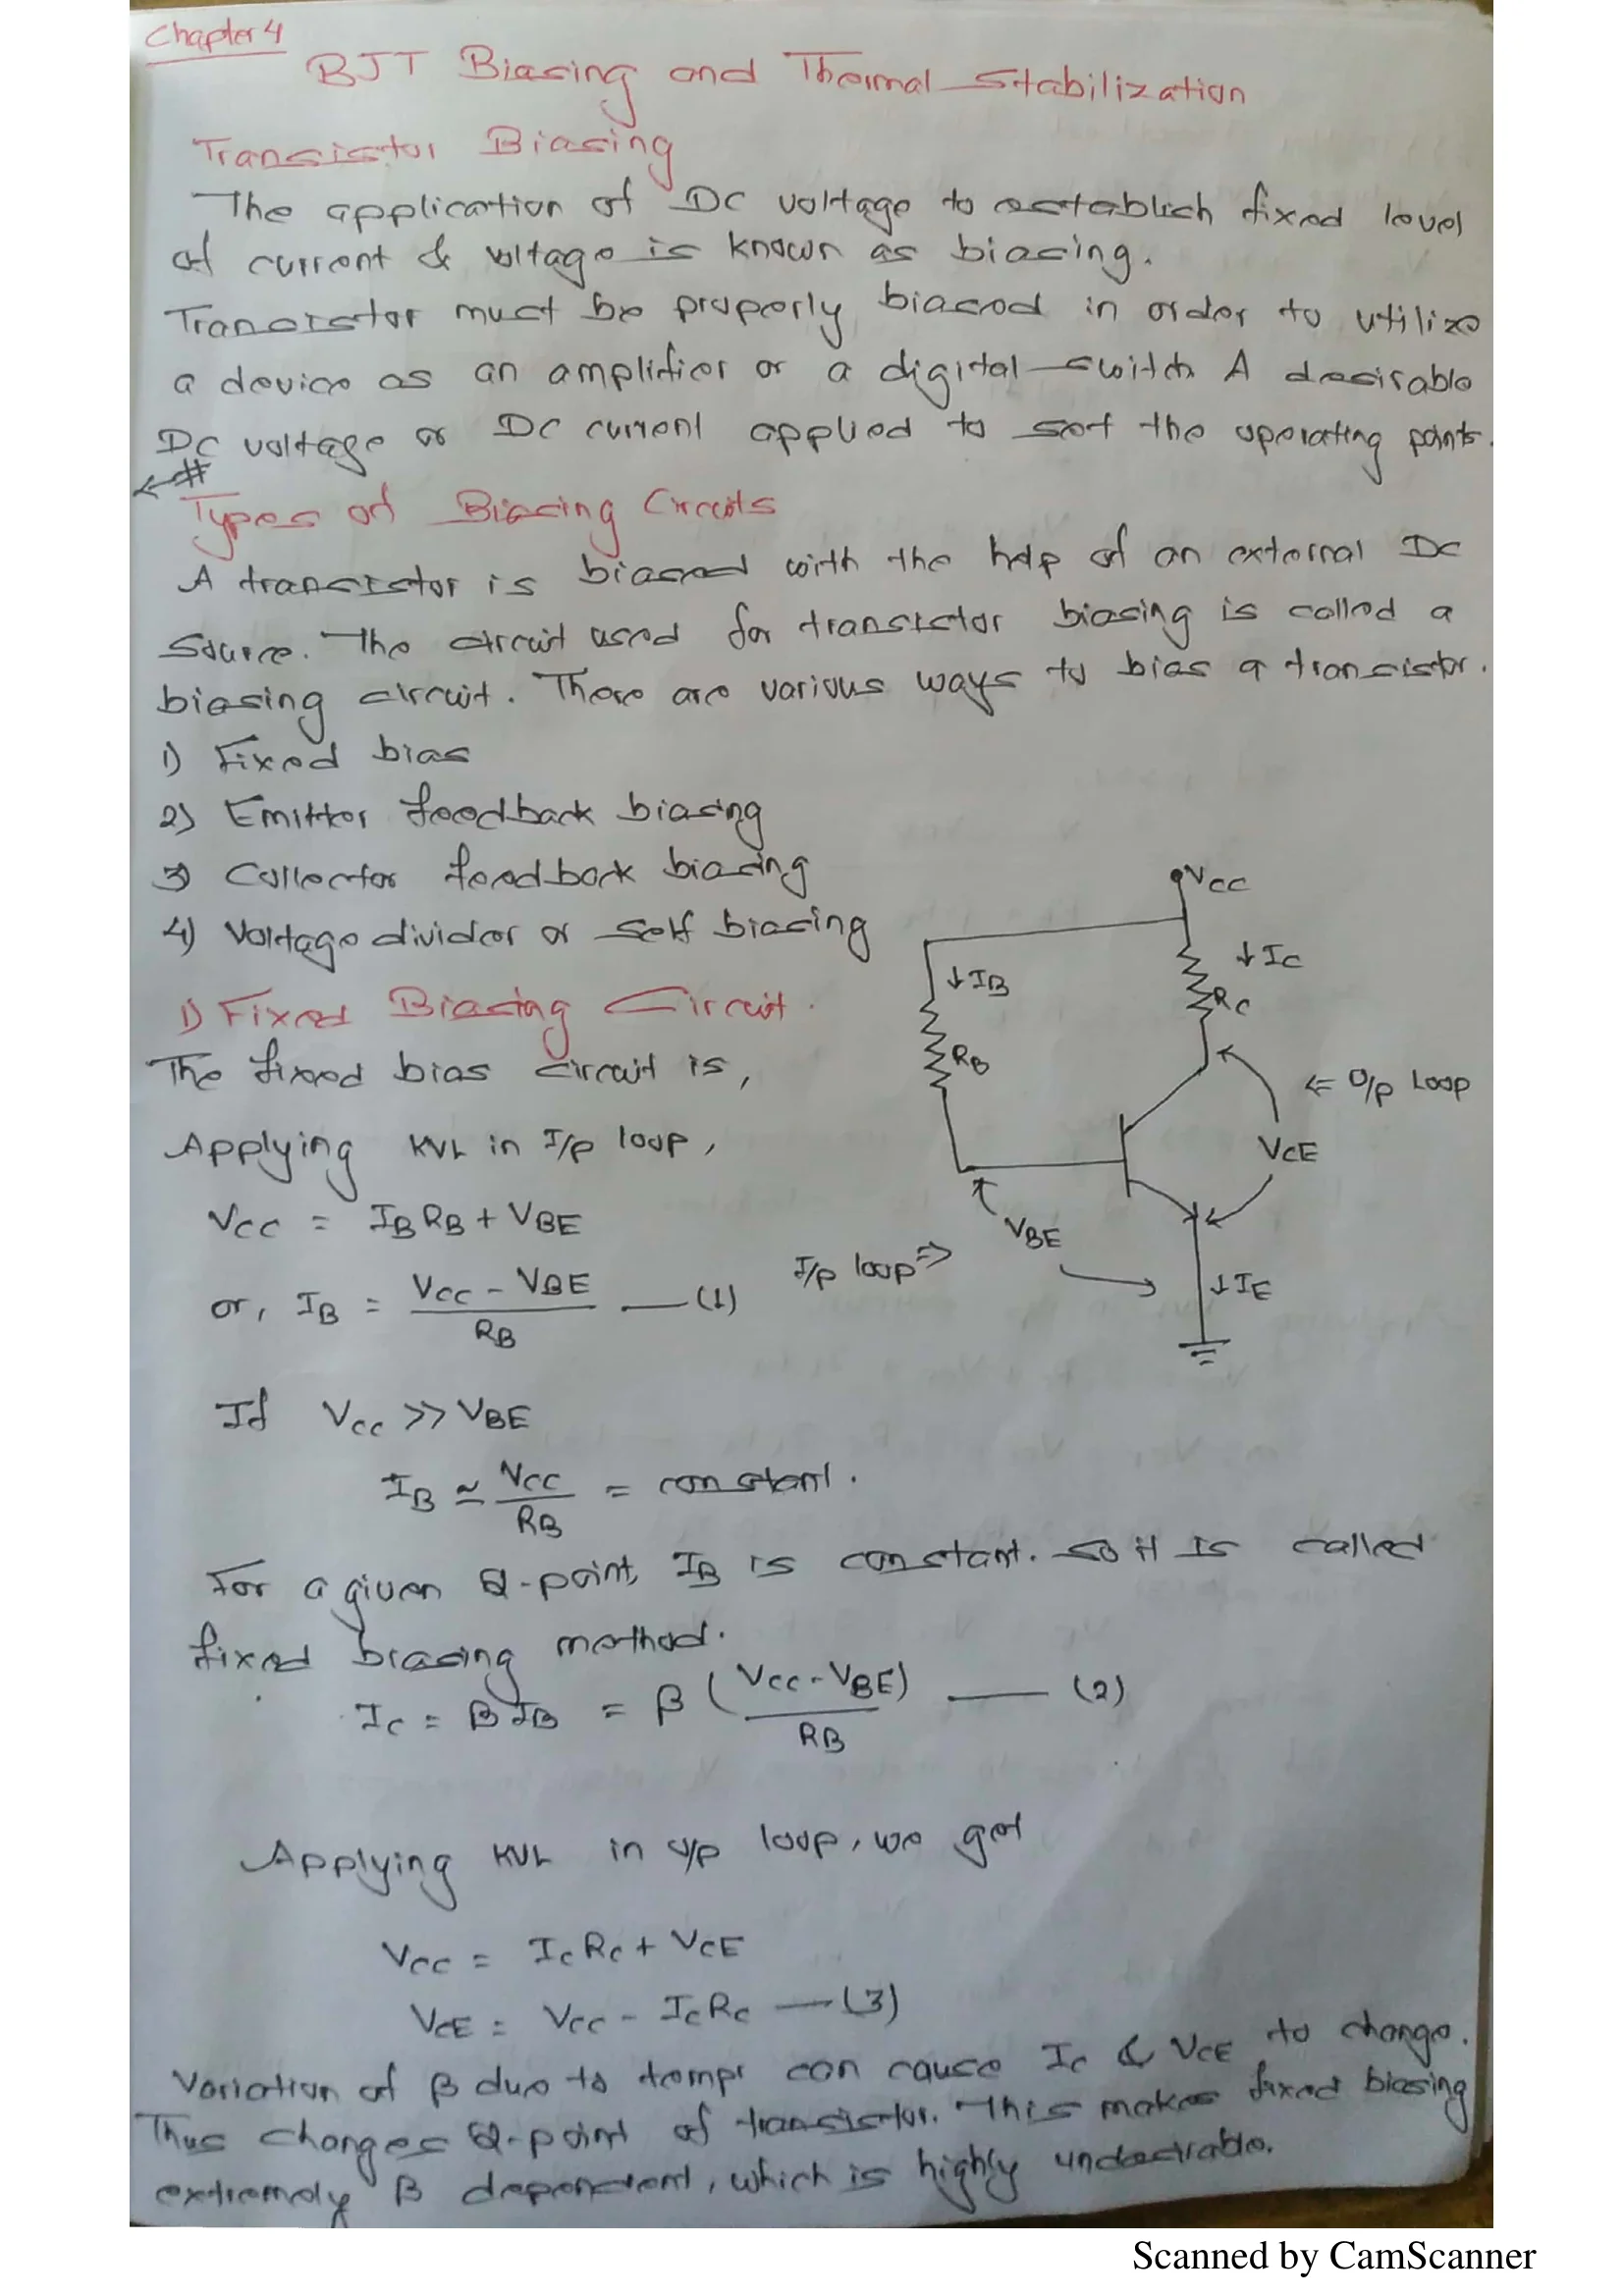 Chapter 4
BJT Biasing and Thermal Stabilization
Transistor Biasing
The application of DC voltage to establish fixed level
of current & voltage is known as biasing.
Transistor must be properly biased in order to utilize
a device as an amplifier or a digital switch A desirable
DC voltage or DC current applied to set the operating points.
←#
Types of Biasing Circuits
A transistor is biased with the help of an external DC
source. The circuit used for transistor biasing is called a
biasing circuit. There are various ways to bias a transistor.
1) Fixed bias
2) Emitter feedback biasing
3) Collector feedback biasing
4) Voltage divider or self biasing
1) Fixed Biasing Circuit.
The fixed bias circuit is,
Applying KVL in I/p loop,
VCC = IB RB + VBE
or, IB = (VCC - VBE) / RB — (1)
VCC
↓IC
↓IB
RC
RB
⇐ O/p Loop
VCE
VBE
I/p loop ⇒
↓IE
If VCC >> VBE
IB ≃ VCC / RB = constant.
For a given Q-point, IB is constant. so it is called
fixed biasing method.
IC = β IB = β ( (VCC - VBE) / RB ) — (2)
Applying KVL in o/p loop, we get
VCC = IC RC + VCE
VCE = VCC - IC RC — (3)
Variation of β due to tempr can cause IC & VCE to change.
Thus changes Q-point of transistor. This makes fixed biasing
extremely β dependent, which is highly undesirable.
Scanned by CamScanner